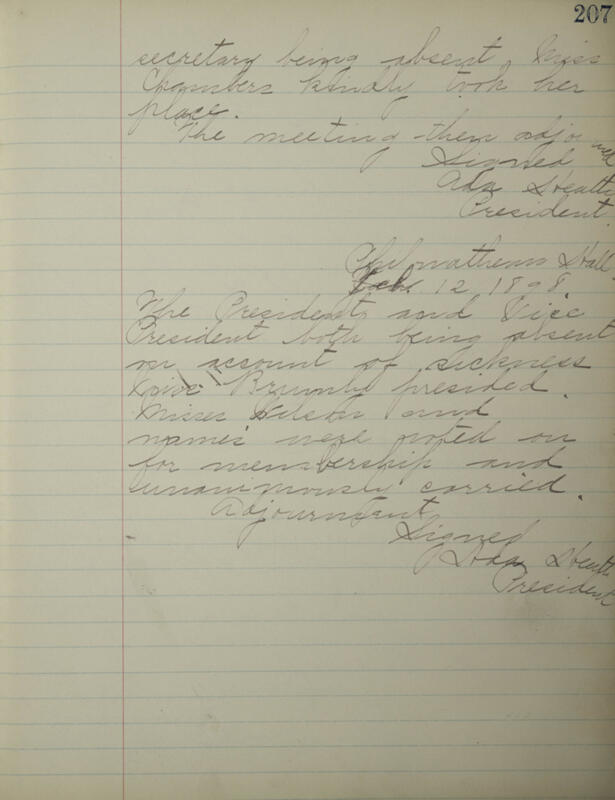 207
secretary being absent Miss
Chambers kindly took her
place.
The meeting then adjourned
Signed
Ada Heath
President.
Philomathean Hall
Feb. 12 1898
The President and Vice
President both being absent
on account of sickness
Brumby presided.
Misses Wilson and
names were voted on
for membership and
unanimously carried.
Adjournment
Signed
Ada Heath
President